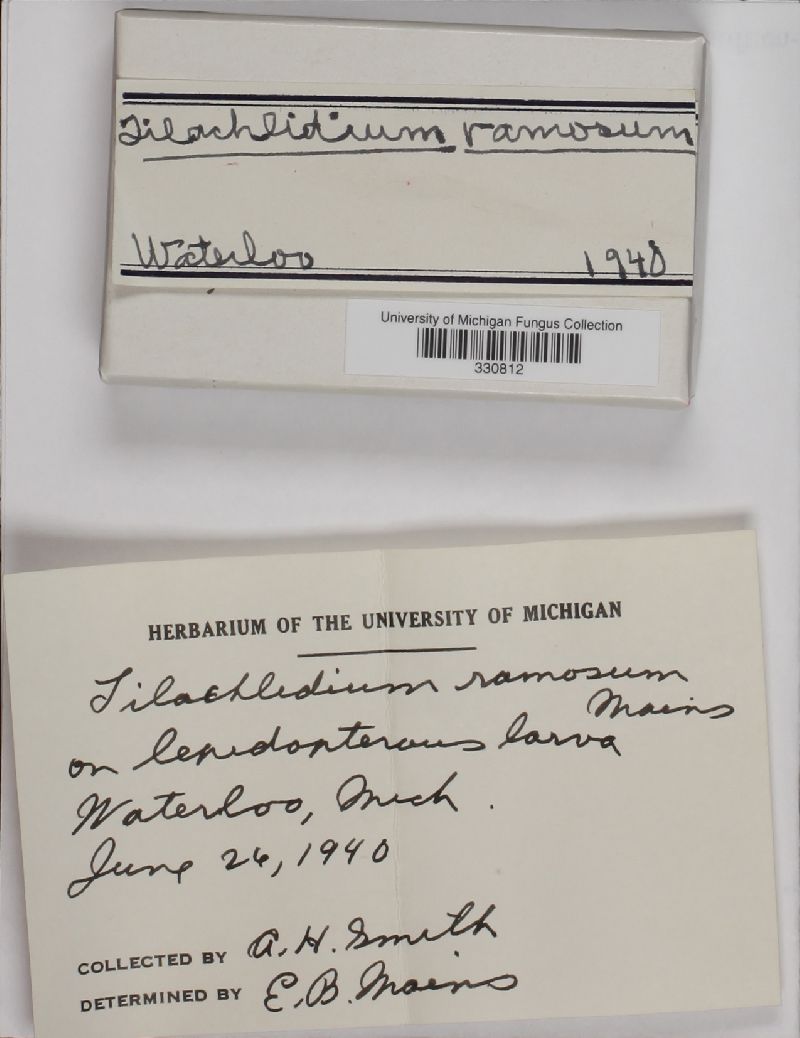 Tilachlidium ramosum
Waterloo 1940
University of Michigan Fungus Collection
330812
HERBARIUM OF THE UNIVERSITY OF MICHIGAN
Tilachlidium ramosum
Mains
on lepidopterous larva
Waterloo, Mich.
June 26, 1940
COLLECTED BY A. H. Smith
DETERMINED BY E. B. Mains